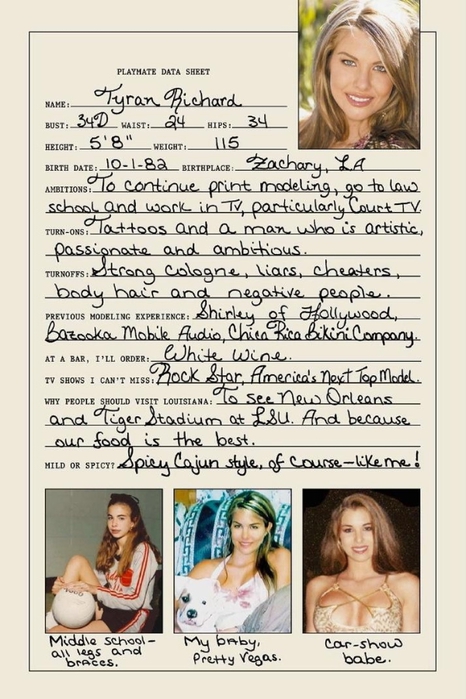 PLAYMATE DATA SHEET
NAME: Tyran Richard
BUST: 34D WAIST: 24 HIPS: 34
HEIGHT: 5'8" WEIGHT: 115
BIRTH DATE: 10-1-82 BIRTHPLACE: Zachary, LA
AMBITIONS: To continue print modeling, go to law
school and work in TV, particularly Court TV.
TURN-ONS: Tattoos and a man who is artistic,
passionate and ambitious.
TURNOFFS: Strong cologne, liars, cheaters,
body hair and negative people.
PREVIOUS MODELING EXPERIENCE: Shirley of Hollywood,
Bazooka Mobile Audio, Chica Rica Bikini Company.
AT A BAR, I'LL ORDER: White wine.
TV SHOWS I CAN'T MISS: Rock Star, America's Next Top Model.
WHY PEOPLE SHOULD VISIT LOUISIANA: To see New Orleans
and Tiger Stadium at LSU. And because
our food is the best.
MILD OR SPICY? Spicy Cajun style, of course—like me!
Middle school—
all legs and
braces.
My baby,
Pretty Vegas.
Car-show
babe.